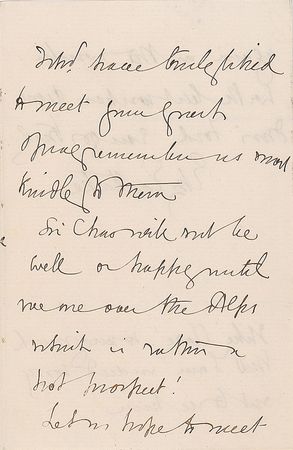 should have truly liked
to meet your guest
Pray remember us most
Kindly to them
Sir Chas will not be
well or happy until
we are over the Alps
which is rather a
hot prospect!
Let us hope to meet